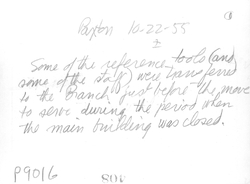 Paxton 10-22-55
I
Some of the reference tools (and
some of the staff) were transferred
to the Branch just before the move
to serve during the period when
the main building was closed.
P9016